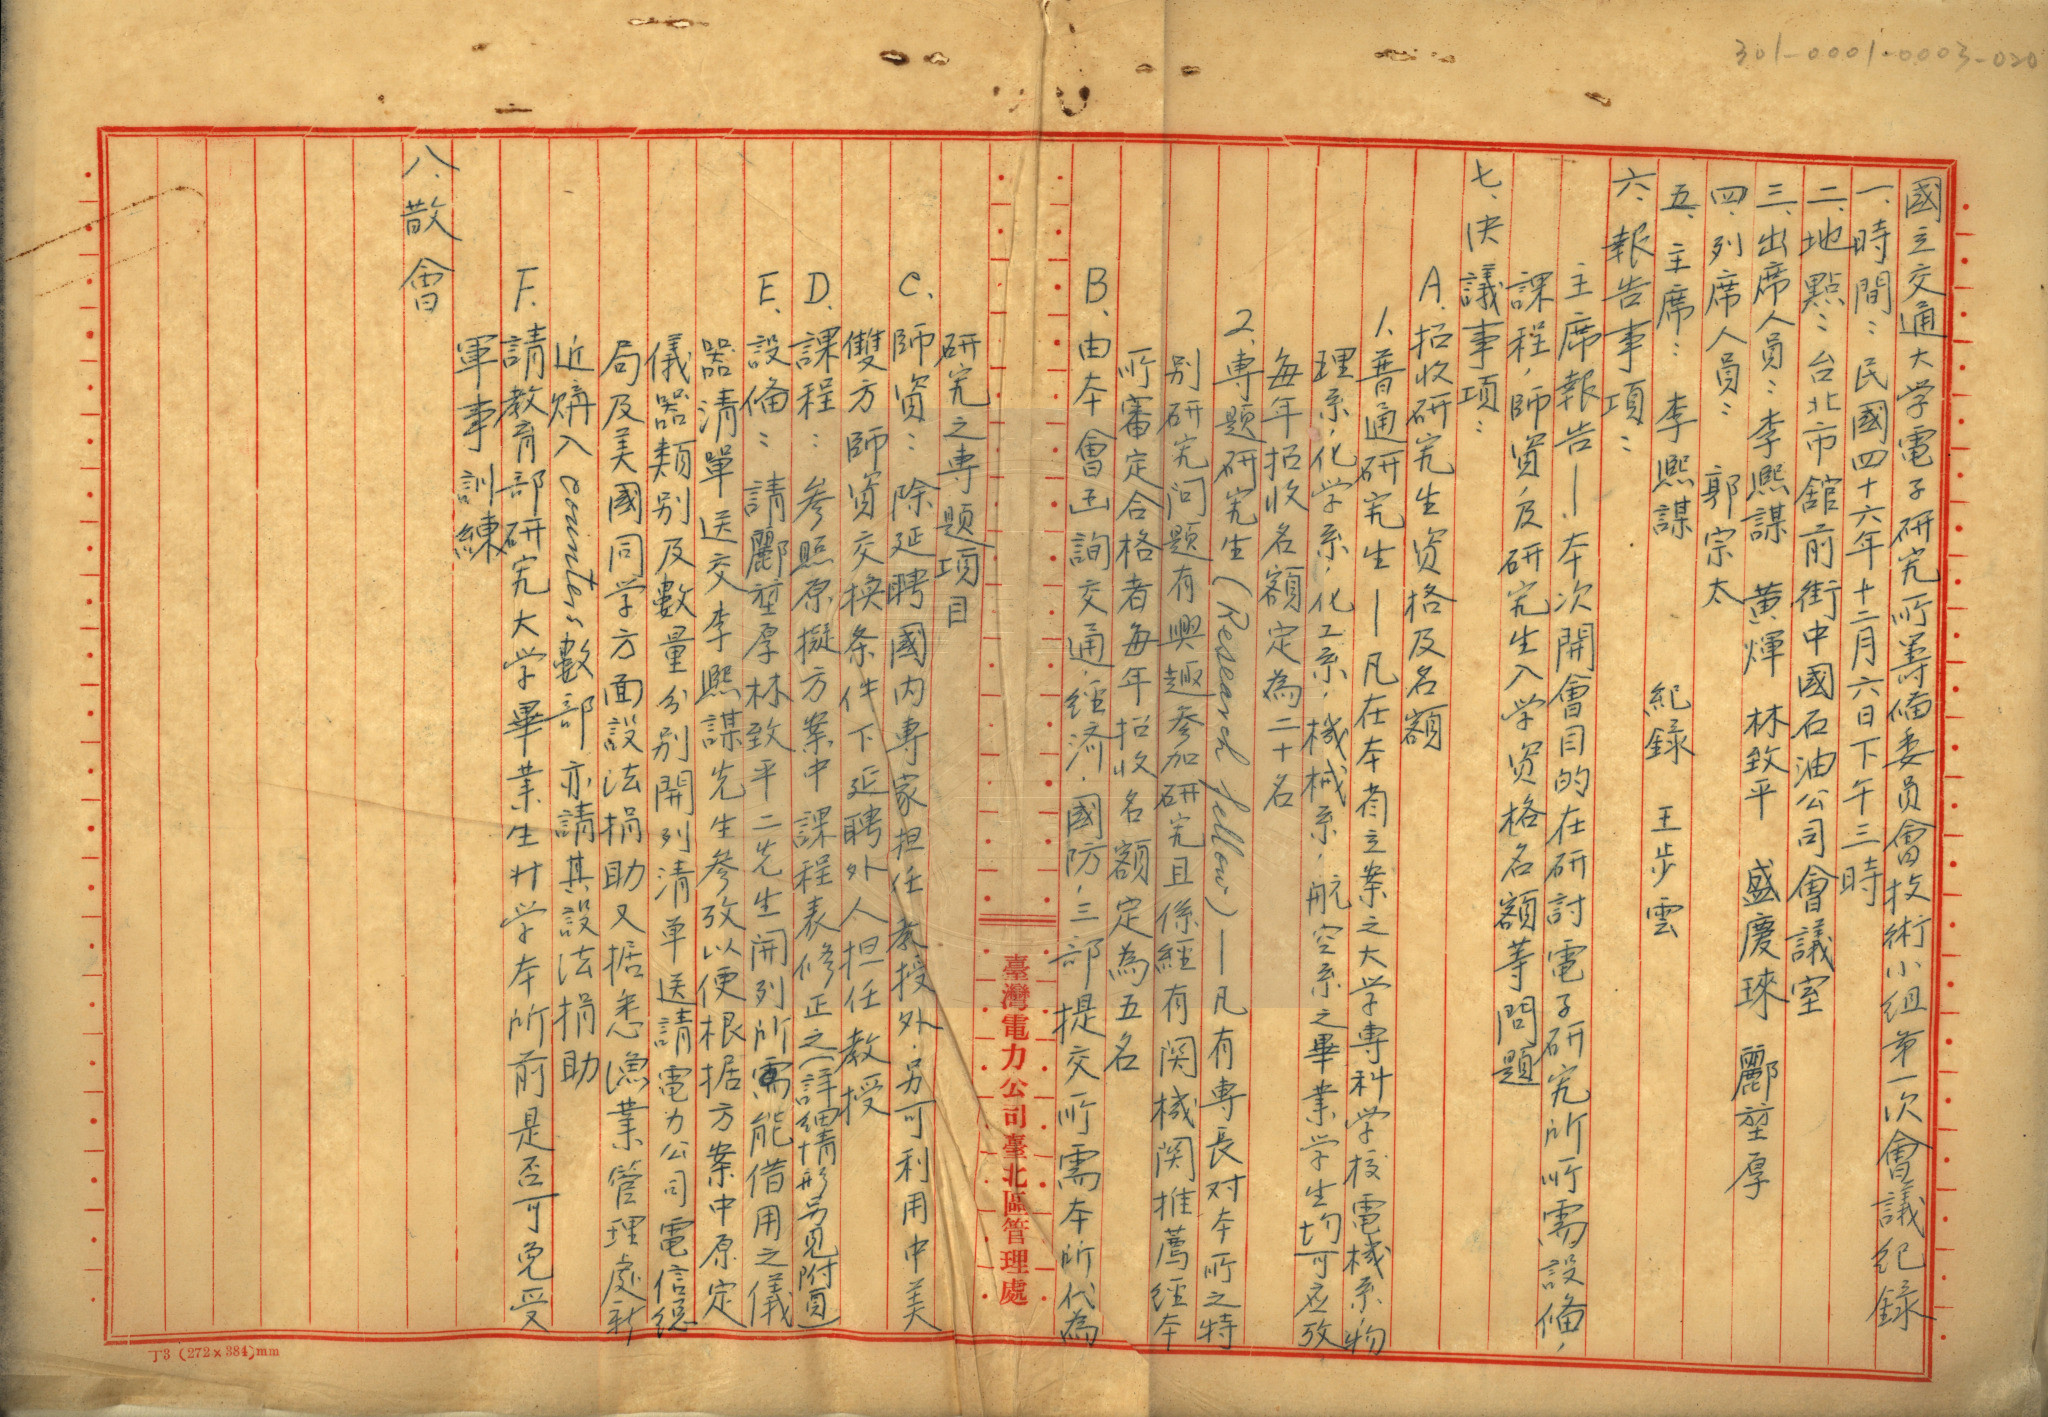 301-0001-0003-020
國立交通大学電子研究所籌備委員會技術小組第一次會議紀錄
一、時間：民國四十六年十二月六日下午三時
二、地點：台北市舘前街中國石油公司會議室
三、出席人員：李熙謀 黄煇 林致平 盛慶琜 酈堃厚
四、列席人員： 郭宗太
五、主席： 李熙謀 紀錄 王步雲
六、報告事項：
主席報告—本次開會目的在研討電子研究所所需設備，
課程，師資及研究生入学資格名額等問題
七、決議事項：
A、招收研究生資格及名額
1、普通研究生—凡在本省立案之大学專科学校電機系，物
理系，化学系，化工系，機械系，航空系之畢業学生均可应攷
每年招收名額定為二十名
2、專題研究生（Research fellow）—凡有專長对本所之特
别研究问題有興趣参加研究且係經有関機関推薦經本
所審定合格者每年招收名額定為五名
B、由本會函詢交通，經济，國防，三部提交所需本所代為
研究之專題項目
C、師資：除延聘國内專家担任教授外，另可利用中美
雙方師資交换条件下延聘外人担任教授
D、課程：参照原擬方案中課程表修正之（詳細情形另見附頁）
E、設備：請酈堃厚林致平二先生開列所需能借用之儀
器清單送交李熙謀先生参攷以便根据方案中原定
儀器類别及數量分别開列清单送請電力公司電信總
局及美國同学方面設法捐助又据悉漁業管理處新
近購入counters數部亦請其設法捐助
F、請教育部研究大学畢業生升学本所前是否可免受
軍事訓練
八、散會
臺灣電力公司臺北區管理處
丁3 (272×384)mm